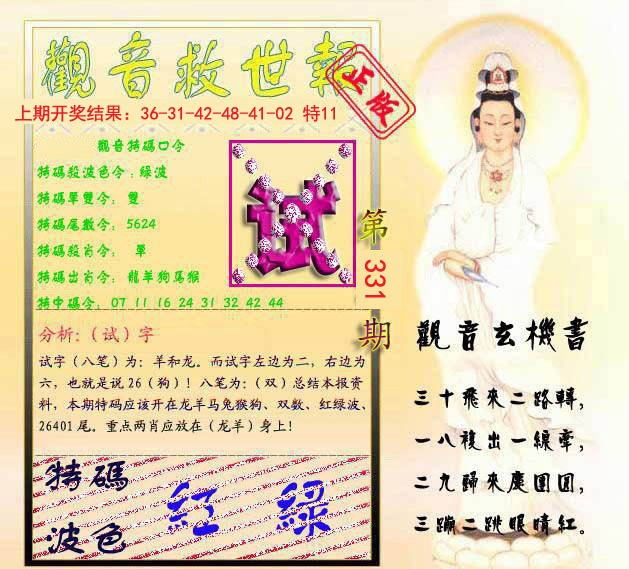 觀音救世報
正版
上期开奖结果：36-31-42-48-41-02 特11
觀音特碼口令
特碼殺波色令：綠波
特碼單雙令： 雙
特碼尾數令： 5624
特碼殺肖令： 單
特碼出肖令： 龍羊狗馬猴
特中碼令： 07 11 16 24 31 32 42 44
试
第331期
分析：（试）字
试字（八笔）为：羊和龙。而试字左边为二，右边为
六，也就是说 26（狗）！八笔为：（双）总结本报资
料，本期特码应该开在龙羊马兔猴狗、双数、红绿波、
26401 尾。重点两肖应放在（龙羊）身上！
特碼
波色
紅 綠
觀音玄機書
三十飛來二路轉，
一八複出一線牽，
二九歸來慶團圓，
三蹦二跳眼睛紅。